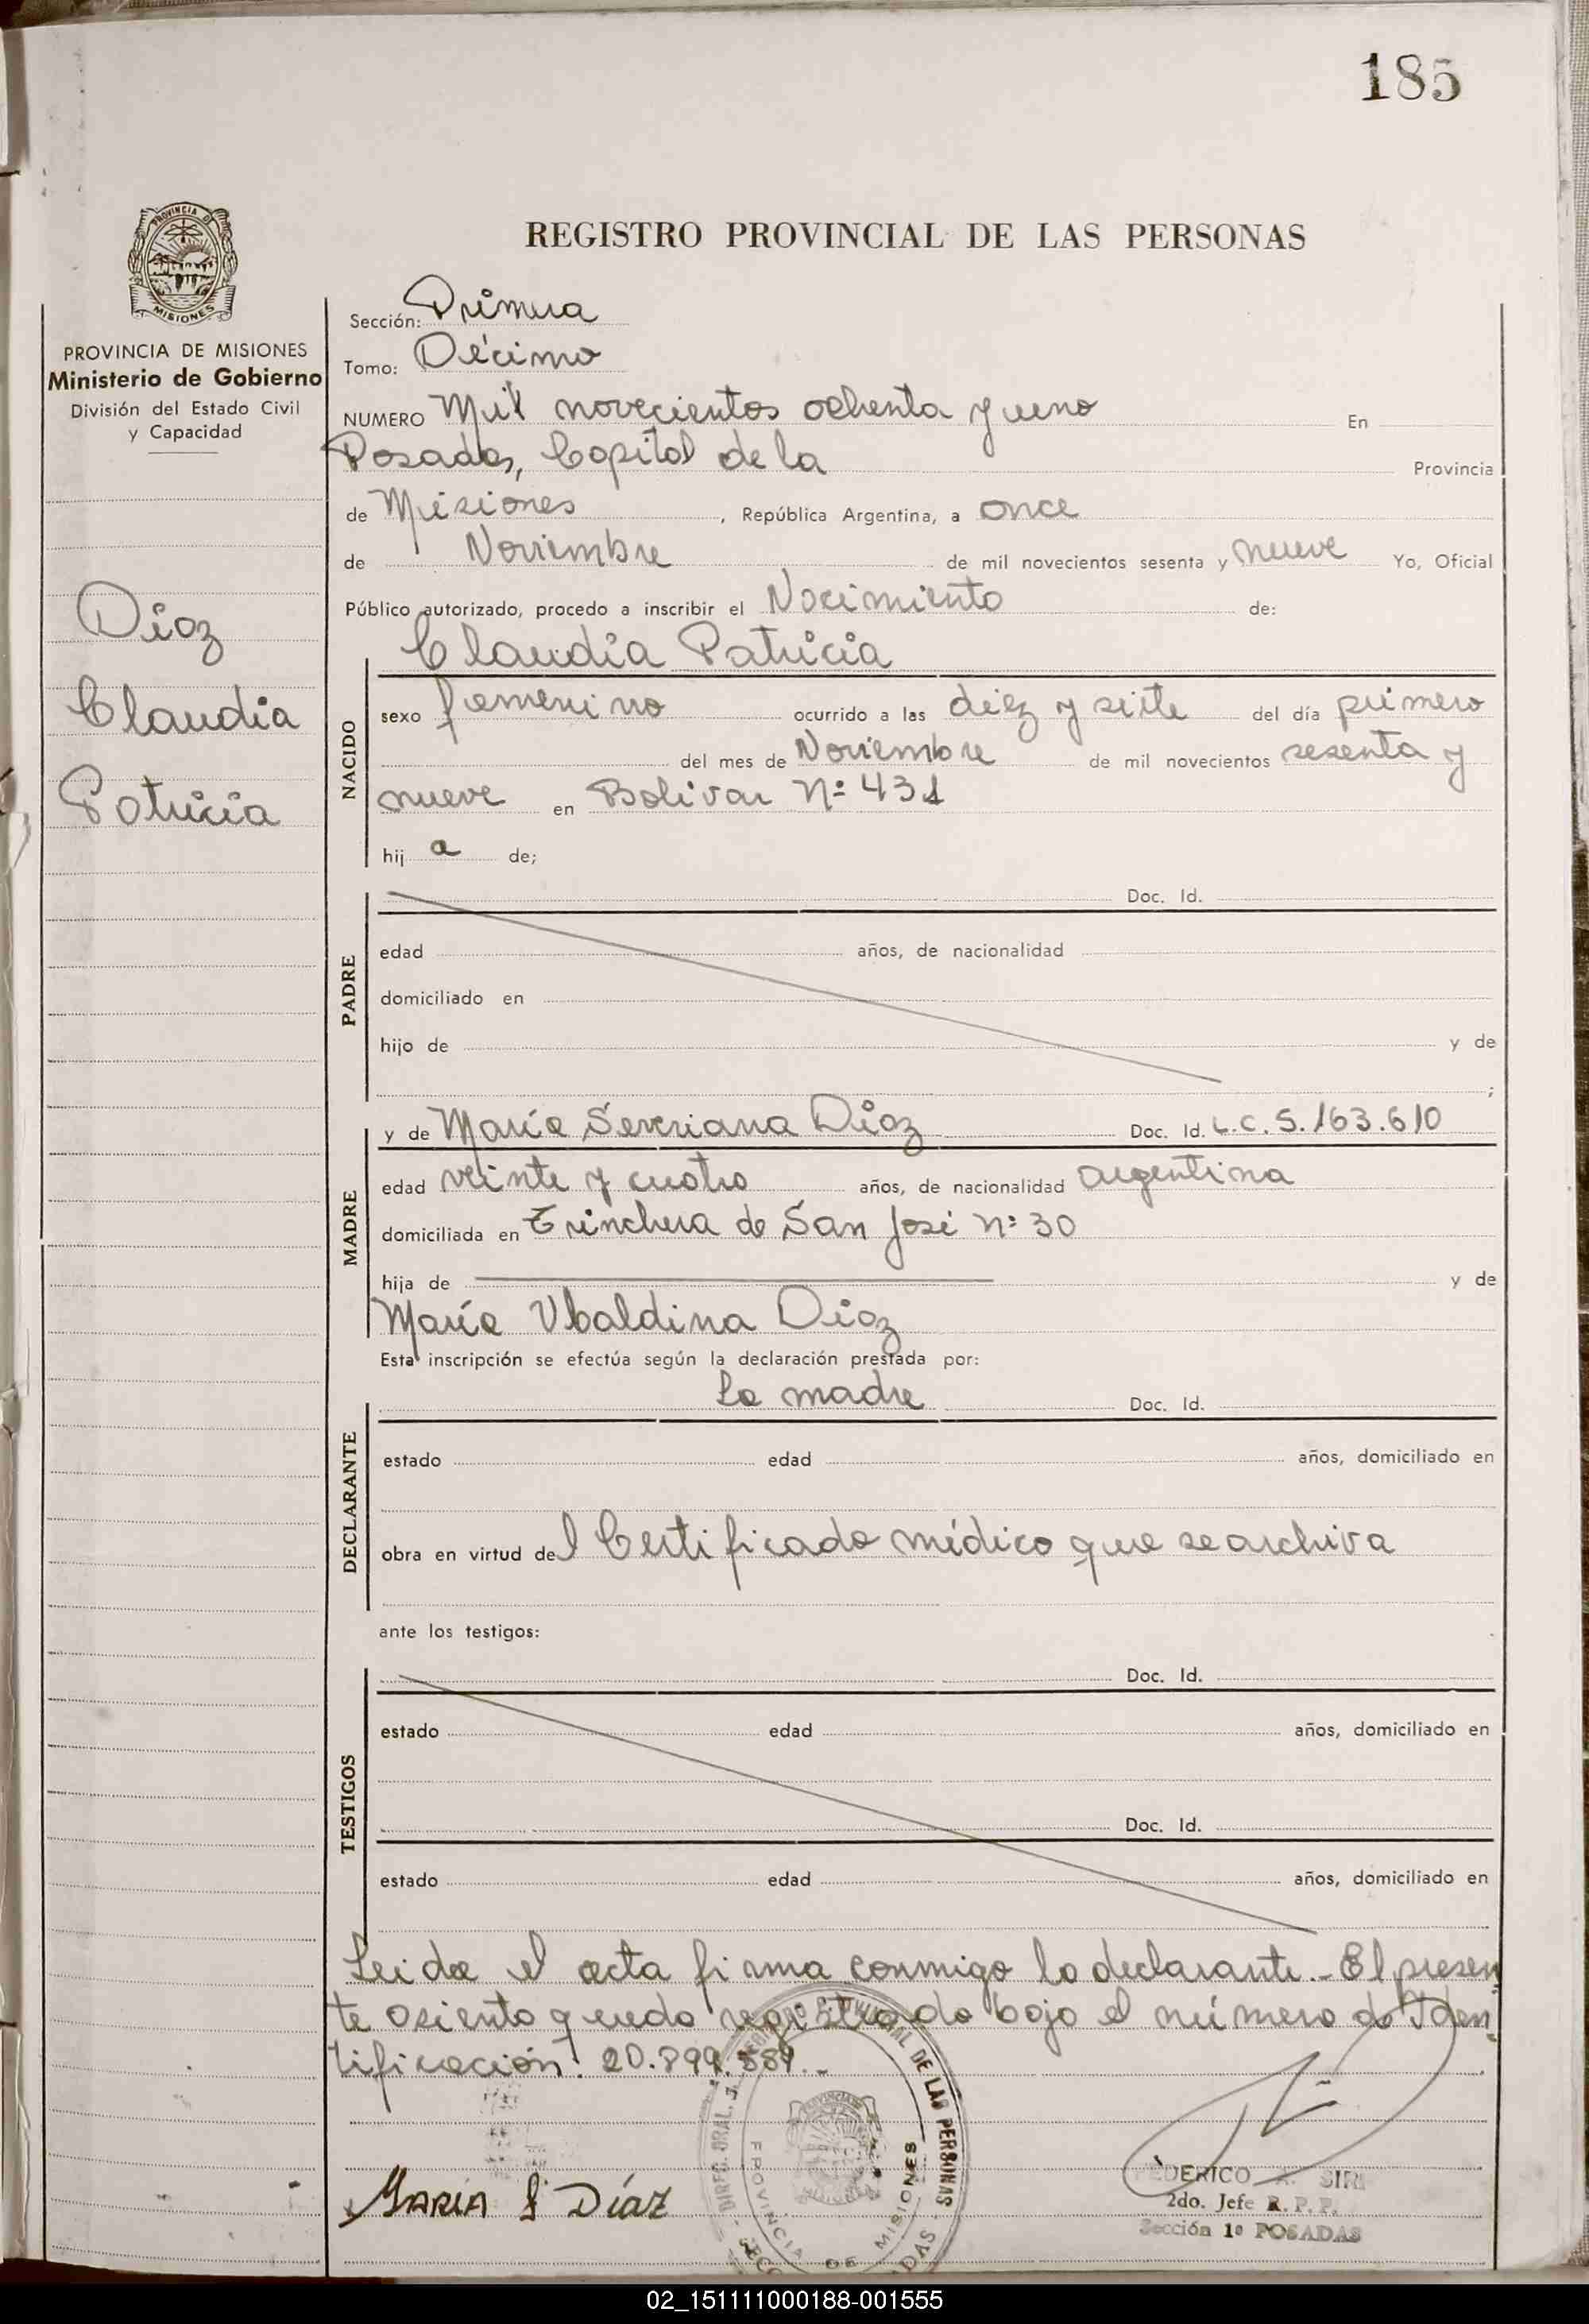 185
PROVINCIA DE
MISIONES
REGISTRO PROVINCIAL DE LAS PERSONAS
PROVINCIA DE MISIONES
Ministerio de Gobierno
División del Estado Civil
y Capacidad
Díaz
Claudia
Patricia
Sección: Primera
Tomo: Décimo
NUMERO Mil novecientos ochenta y uno En
Posadas, Capital de la Provincia
de Misiones, República Argentina, a once
de Noviembre de mil novecientos sesenta y nueve Yo, Oficial
Público autorizado, procedo a inscribir el Nacimiento de:
Claudia Patricia
NACIDO
sexo femenino ocurrido a las diez y siete del día primero
del mes de Noviembre de mil novecientos sesenta y
nueve en Bolívar Nº 431
hij a de;
PADRE
Doc. Id.
edad años, de nacionalidad
domiciliado en
hijo de y de
;
MADRE
y de María Severiana Díaz Doc. Id. L.C. 5.163.610
edad veinte y cuatro años, de nacionalidad argentina
domiciliada en Trinchera de San José nº 30
hija de y de
María Ubaldina Díaz
Esta inscripción se efectúa según la declaración prestada por:
DECLARANTE
la madre Doc. Id.
estado edad años, domiciliado en
obra en virtud del Certificado médico que se archiva
ante los testigos:
TESTIGOS
Doc. Id.
estado edad años, domiciliado en
Doc. Id.
estado edad años, domiciliado en
Leida el acta firma conmigo la declarante.- El presen
te asiento queda registrado bajo el número de Iden
tificación: 20.899.
MARÍA S Díaz
REGISTRO PROVINCIAL DE LAS PERSONAS
PROVINCIA DE MISIONES
2do. Jefe R. P. P.
Sección 1º POSADAS
02_151111000188-001555